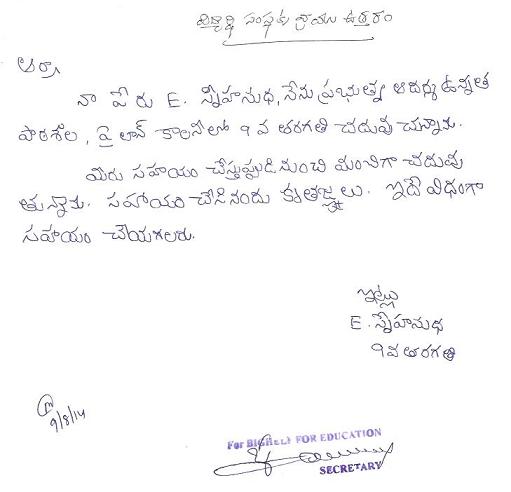 విద్యార్థి సంస్థకు వ్రాయు ఉత్తరం
ఆర్యా
నా పేరు E. స్నేహసుధ, నేను ప్రభుత్వ ఆదర్శ ఉన్నత
పాఠశాల, పైలాన్ కాలనీలో 9 వ తరగతి చదువు చున్నాను.
మీరు సహాయం చేస్తప్పుడి నుంచి మంచిగా చదువు
తున్నాను. సహాయం చేసినందు కృతజ్ఞలు. ఇదే విధంగా
సహాయం చేయగలరు.
ఇట్లు
E. స్నేహసుధ
9వ తరగతి
9/8/14
For BIGHELP FOR EDUCATION
SECRETARY